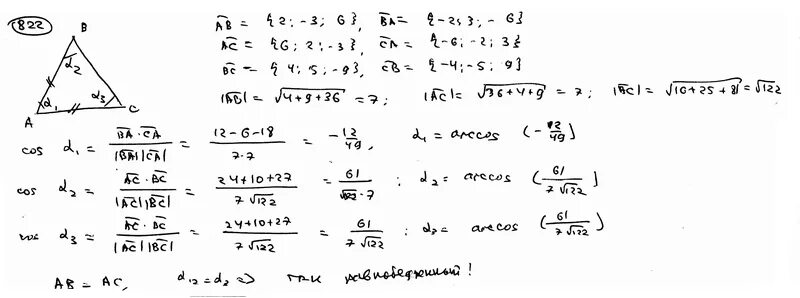 822
B
α₂
α₁
α₃
A
C
AB = {2; -3; 6}, BA = {-2; 3; -6}
AC = {6; 2; -3}, CA = {-6; -2; 3}
BC = {4; 5; -9}, CB = {-4; -5; 9}
|AB| = √4+9+36 = 7; |AC| = √36+4+9 = 7; |BC| = √16+25+81 = √122
cos α₁ = BA · CA / |BA||CA| = 12-6-18 / 7·7 = -12/49, α₁ = arccos (-12/49)
cos α₂ = AC · BC / |AC||BC| = 24+10+27 / 7√122 = 61 / √122 · 7 ; α₂ = arccos (61 / 7√122)
cos α₃ = AC · BC / |AC||BC| = 24+10+27 / 7√122 = 61 / 7√122 ; α₂ = arccos (61 / 7√122)
AB = AC, α₁₂ = α₂ => так равнобедренный!